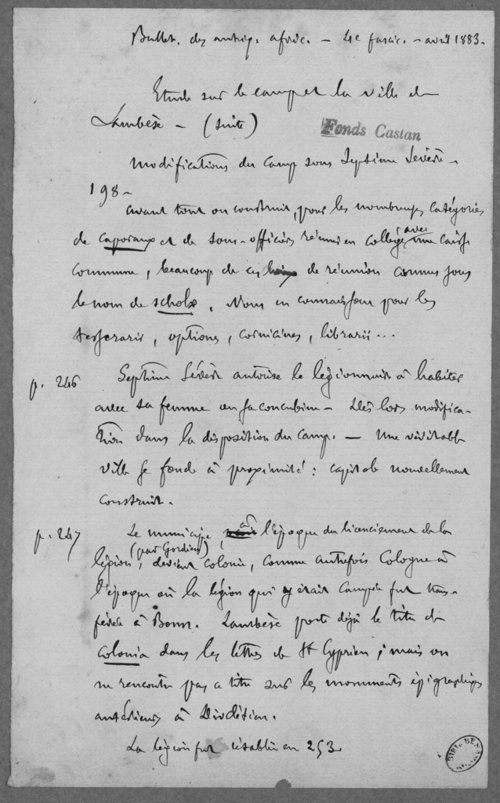 Bullet. des antiq. afric. – 4e fascic. – avril 1883.
Etude sur le camp et la ville de
Lambèse – (suite)
Fonds Castan
Modifications du camp sous Septime Sévère –
198 –
avant tout on construit, pour les nombreuses catégories
de caporaux et de sous-officiers réunis en collèges avec une caisse
commune, beaucoup de ces de réunion connus sous
le nom de scholæ. Nous en connaissons pour les
tesserarii, optiones, cornicines, librarii...
p. 246 Septime Sévère autorise le légionnaire à habiter
avec sa femme ou sa concubine – Dès lors modifica-
tion dans la disposition du camp. – Une véritable
ville se fonde à proximité : capitole nouvellement
construit.
p. 247 Le municipe, à l'époque du licenciement de la
légion (par Gordien), devient colonie, comme autrefois Cologne à
l'époque où la légion qui y était campée fut trans-
férée à Bonn. Lambèse porte déjà le titre de
colonia dans les lettres de St Cyprien ; mais on
ne rencontre pas ce titre sur les monuments épigraphiques
antérieurs à Dioclétien.
La légion fut rétablie en 253.